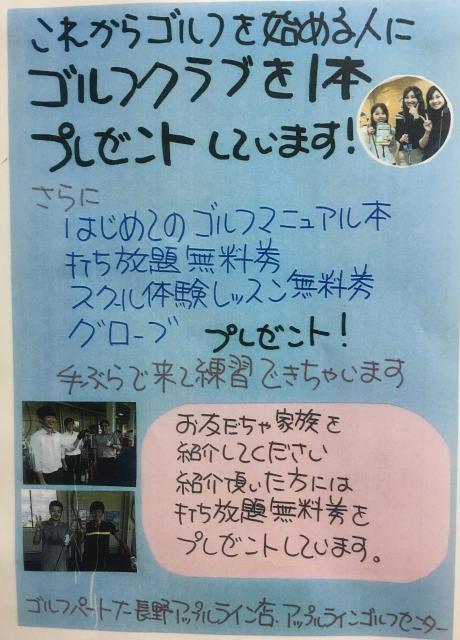 これからゴルフを始める人に
ゴルフクラブを1本
プレゼントしています!
さらに
はじめてのゴルフマニュアル本
打ち放題無料券
スクール体験レッスン無料券
グローブ プレゼント!
手ぶらで来て練習できちゃいます
お友だちや家族を
紹介してください
紹介頂いた方には
打ち放題無料券を
プレゼントしています。
ゴルフパートナー長野アップルライン店・アップルラインゴルフセンター